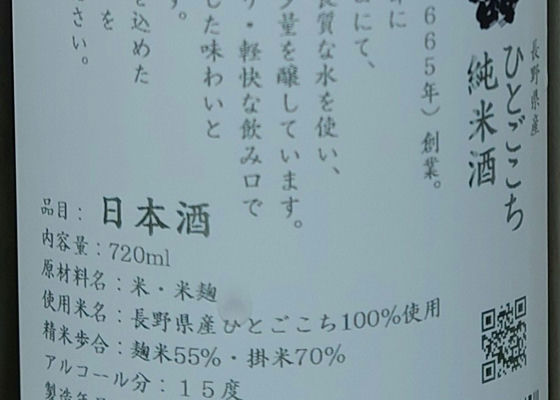 長野県産
ひとごこち
純米酒
665年）創業。
にて、
良質な水を使い、
少量を醸しています。
・軽快な飲み口で
した味わいと
す。
を込めた
を
さい。
品目：日本酒
内容量：720ml
原材料名：米・米麹
使用米名：長野県産ひとごこち100%使用
精米歩合：麹米55%・掛米70%
アルコール分：１５度
製造年月